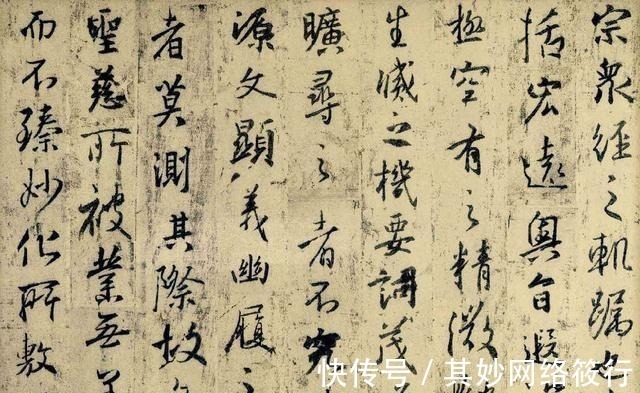 宗眾經之軌躅
括宏遠奧旨遐
極空有之精微
生滅之機要詞茂
曠尋之者不究
源文顯義幽履之
者莫測其際故
聖慈所被業無
而不臻妙化所敷
快传号 / 其妙网络筱行